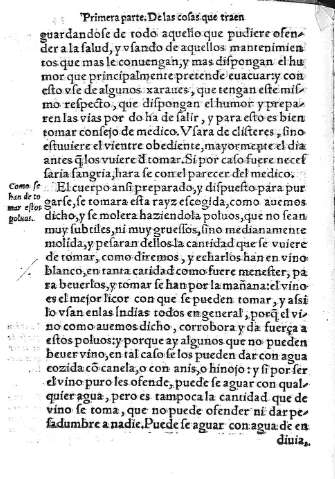 Primera parte. De las cosas que traen
guardandose de todo aquello que pudiere ofen-
der a la salud, y vsando de aquellos mantenimien
tos que mas le conuengan, y mas dispongan el hu
mor que principalmente pretende euacuar y con
esto vse de algunos xaraues, que tengan este mis-
mo respecto, que dispongan el humor y prepa-
ren las vias por do ha de salir, y para esto es bien
tomar consejo de medico. Vsara de clisteres, sino
estuuiere el vientre obediente, mayormente el dia
antes q̃ los vuiere d̃ tomar. Si por caso fuere neces
saria sangria, hara se con el parecer del medico.
Como se
han de to
mar estos
poluos.
El cuerpo ansi preparado, y dispuesto para pur
garse, se tomara esta rayz escogida, como auemos
dicho, y se molera haziendola poluos, que no sean
muy subtiles, ni muy gruessos, sino medianamente
molida, y pesaran dellos la cantidad que se vuiere
de tomar, como diremos, y echarlos han en vino
blanco, en tanta cātidad como fuere menester, pa
ra beuerlos, y tomar se han por la mañana: el vino
es el mejor licor con que se pueden tomar, y assi
lo vsan en las Indias todos en general, porq̃ el vi-
no como auemos dicho, corrobora y da fuerça a
estos poluos: y porque ay algunos que no pueden
beuer vino, en tal caso se los pueden dar con agua
cozida cõ canela, o con anis, o hinojo: y si por ser
el vino puro les ofende, puede se aguar con qual-
quier agua, pero es tampoca la cantidad que de
vino se toma, que no puede ofender ni dar pe-
sadumbre a nadie. Puede se aguar con agua de en
diuia,